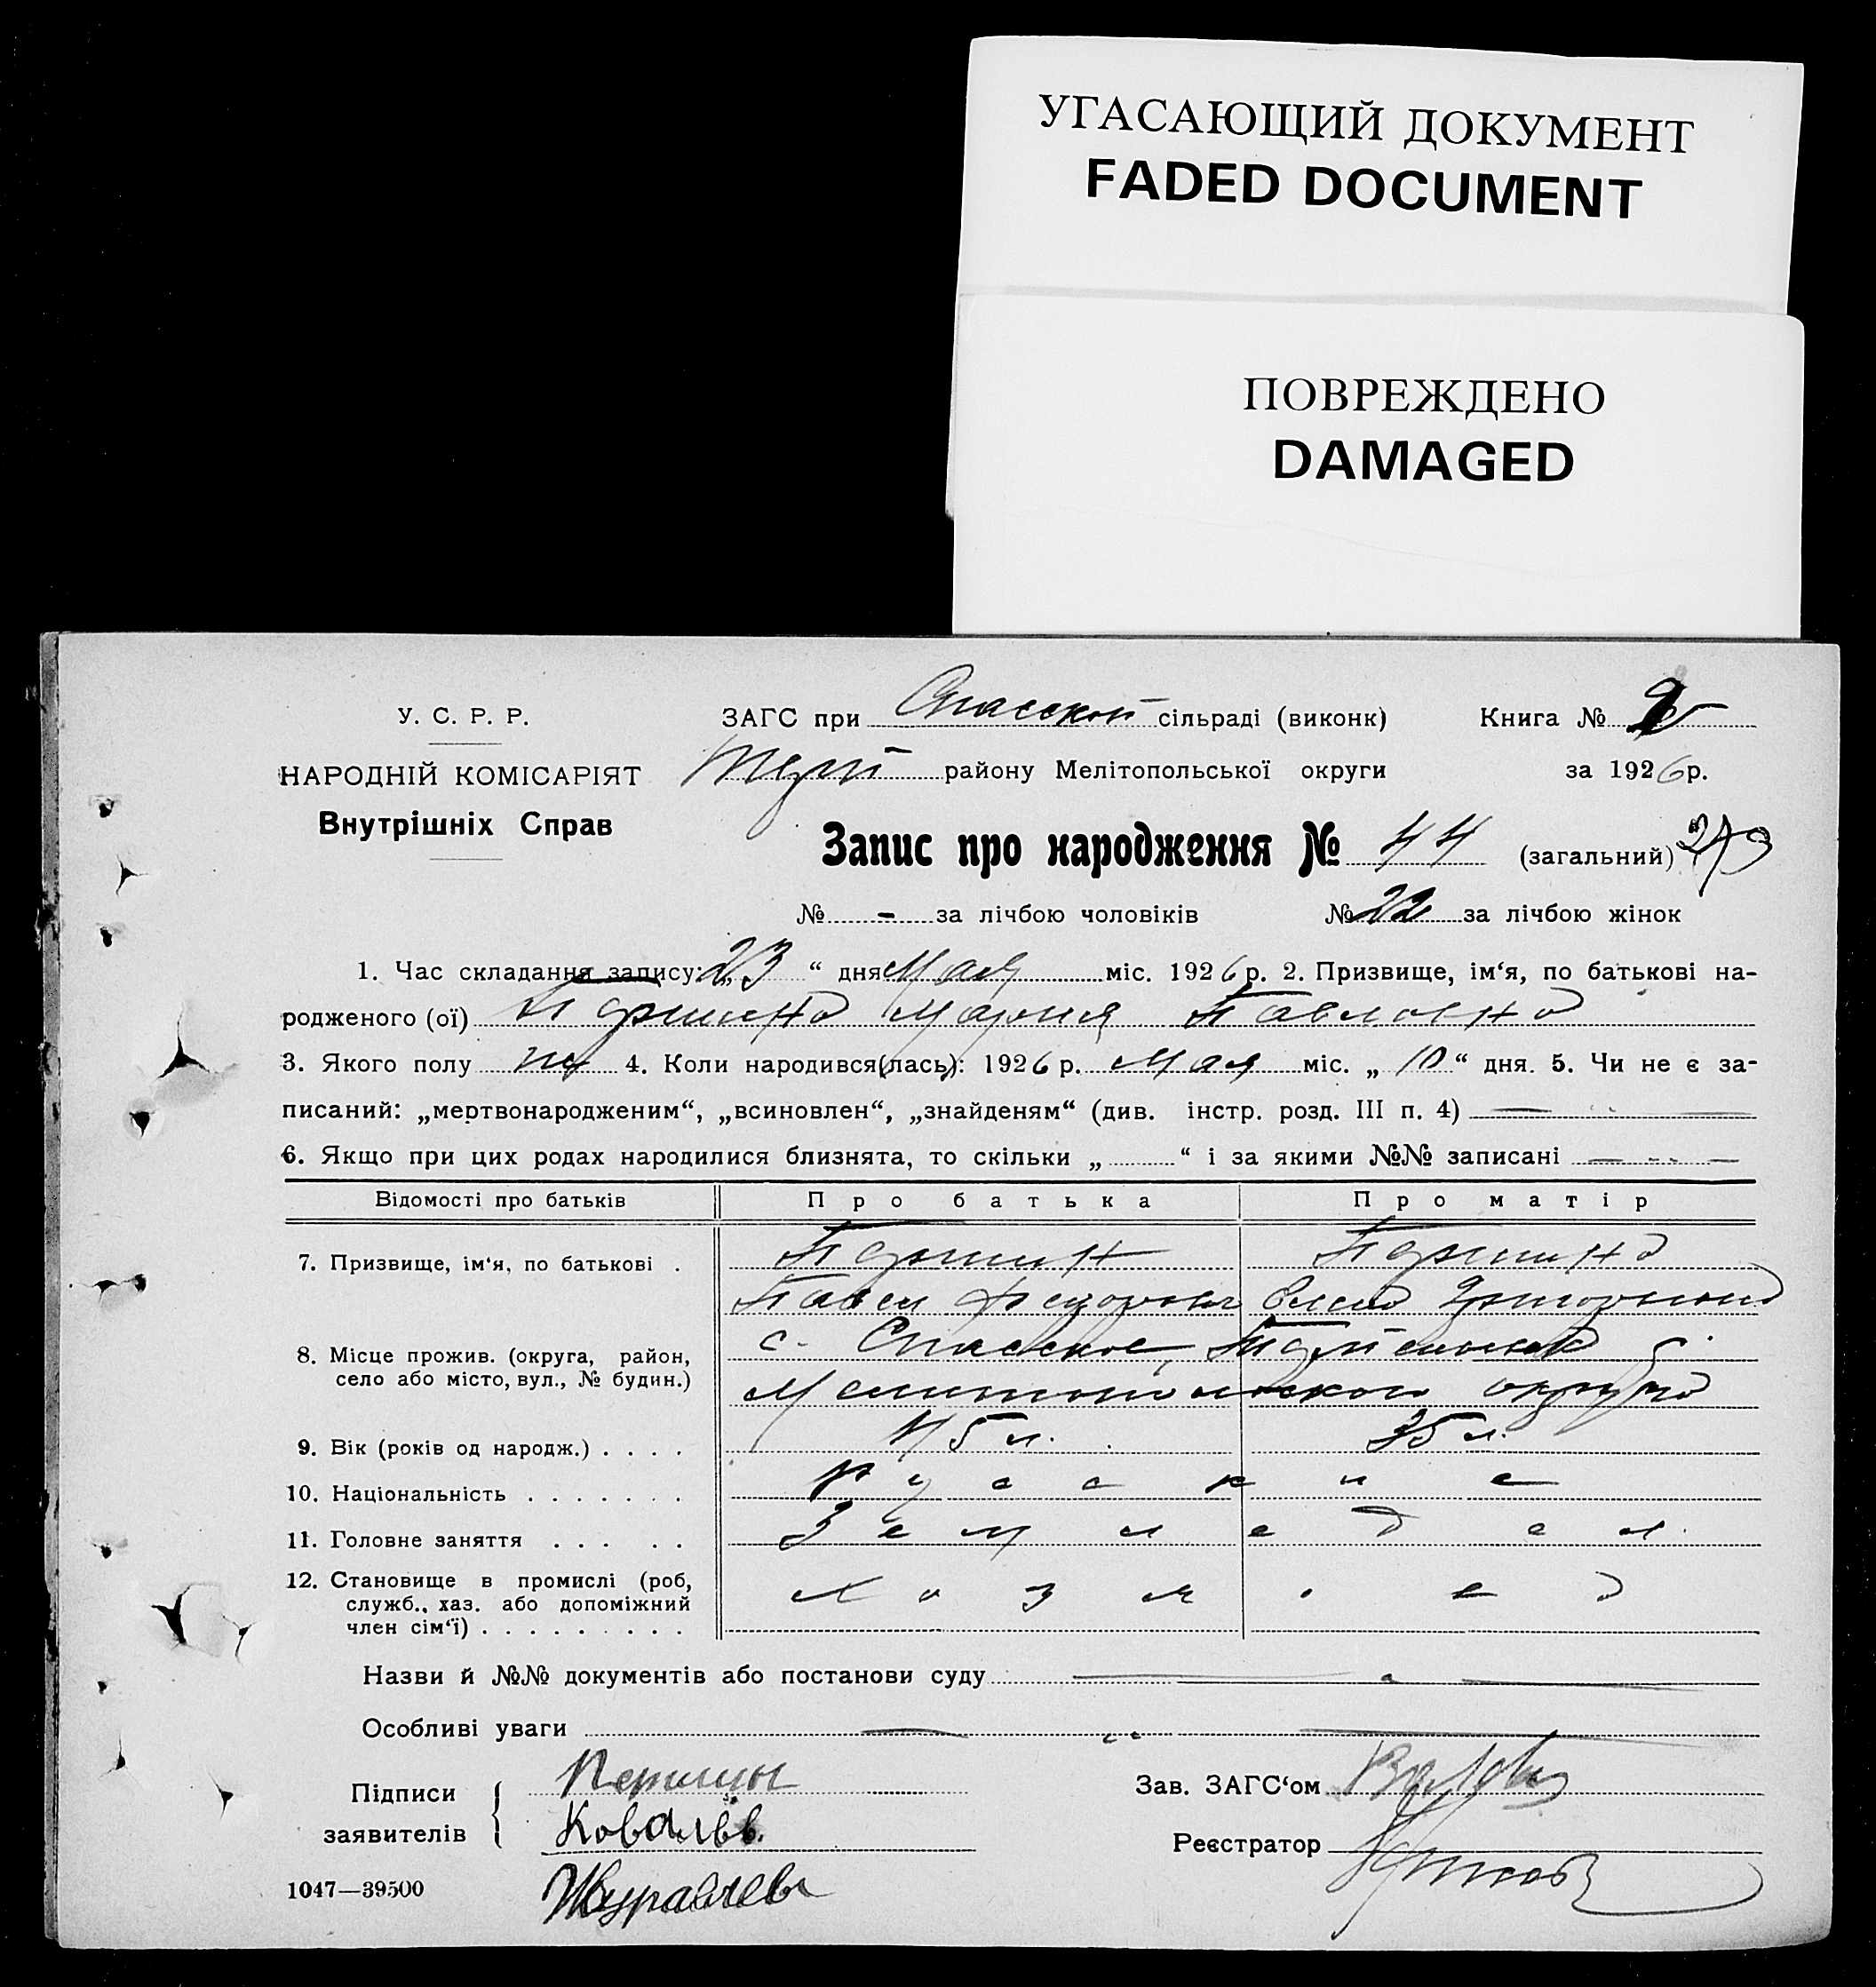 УГАСАЮЩИЙ ДОКУМЕНТ
FADED DOCUMENT
ПОВРЕЖДЕНО
DAMAGED
У. С. Р. Р.
НАРОДНІЙ КОМІСАРІЯТ
Внутрішніх Справ
ЗАГС при Спасской сільраді (виконк) Книга №
району Мелітопольської округи за 1926 р.
Запис про народження № 44 (загальний)
№ - за лічбою чоловіків № 22 за лічбою жінок
1. Час складання запису: „23“ дня Мая міс. 1926 р. 2. Призвище, ім‘я, по батькові на-
родженого (ої) Мария Павловна
3. Якого полу 4. Коли народився(лась): 1926 р. Мая міс. „10“ дня. 5. Чи не є за-
писаний: „мертвонародженим“, „всиновлен“, „знайденям“ (див. інстр. розд. III п. 4)
6. Якщо при цих родах народилися близнята, то скільки „ “ і за якими №№ записані
Відомості про батьків Про батька Про матір
7. Призвище, ім‘я, по батькові .
Павел Федорович
8. Місце прожив. (округа, район, село або місто, вул., № будин.) с. Спасское,
Мелитопольского округа
9. Вік (років од народж.) . . . . 45 л. 35 л.
10. Національність . . . . . . . Русские
11. Головне заняття . . . . . Земледел.
12. Становище в промислі (роб,
служб., хаз. або допоміжний
член сім‘ї) . . . . . . . . .
Назви й №№ документів або постанови суду
Особливі уваги
Підписи
заявителів
Ковалев.
Журавлев
Зав. ЗАГС‘ом
Реєстратор
1047—39500